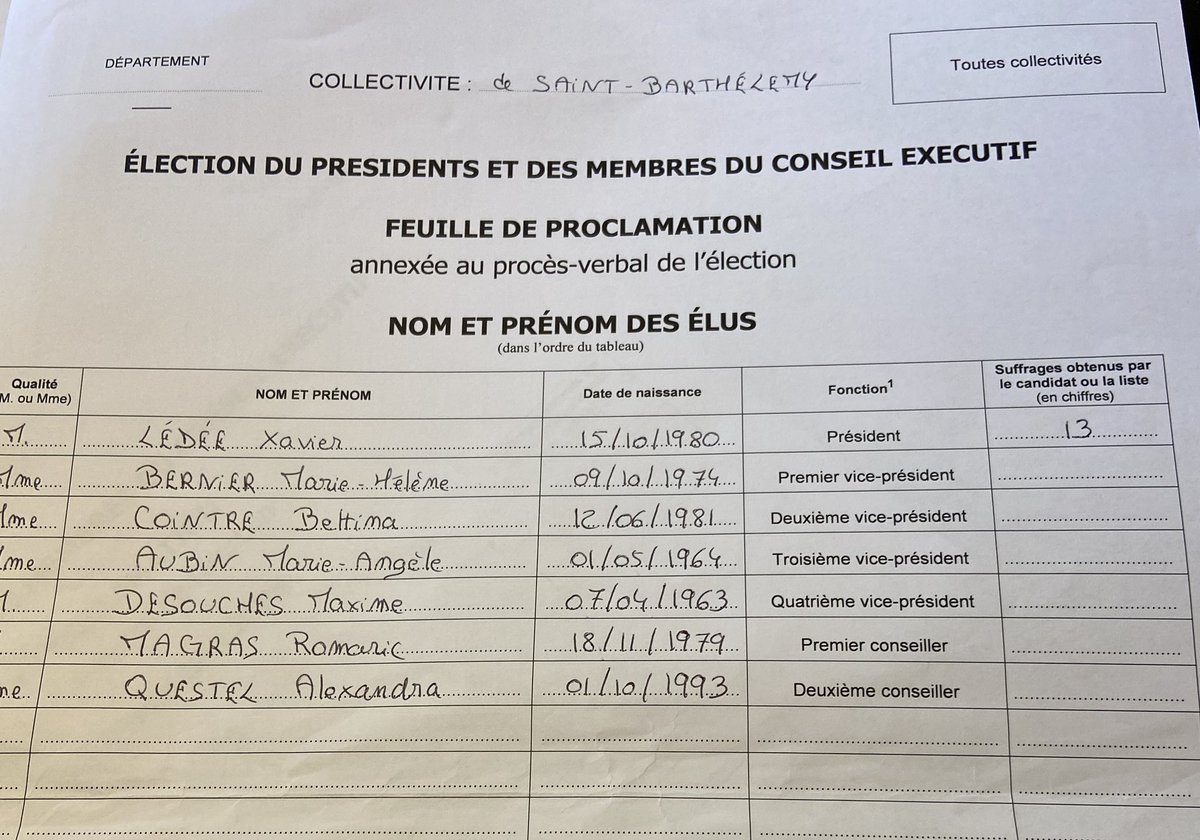 DÉPARTEMENT
COLLECTIVITE : de SAINT-BARTHÉLEMY
Toutes collectivités
ÉLECTION DU PRESIDENTS ET DES MEMBRES DU CONSEIL EXECUTIF
FEUILLE DE PROCLAMATION
annexée au procès-verbal de l'élection
NOM ET PRÉNOM DES ÉLUS
(dans l'ordre du tableau)
Qualité
M. ou Mme)
NOM ET PRÉNOM
Date de naissance
Fonction1
Suffrages obtenus par
le candidat ou la liste
(en chiffres)
M. LÉDÉE Xavier 15/10/1980 Président 13
Mme BERNIER Marie-Hélène 09/10/1974 Premier vice-président
Mme COINTRE Bettina 12/06/1981 Deuxième vice-président
Mme AUBIN Marie-Angèle 01/05/1964 Troisième vice-président
M. DESOUCHES Maxime 07/04/1963 Quatrième vice-président
MAGRAS Romaric 18/11/1979 Premier conseiller
me QUESTEL Alexandra 01/10/1993 Deuxième conseiller